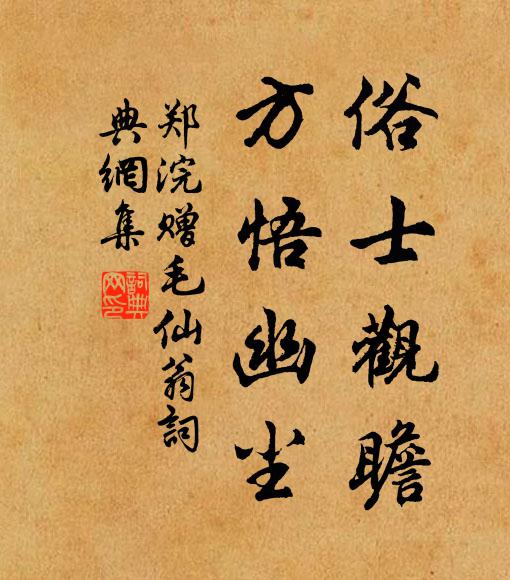 俗士觀瞻
方悟幽尘
郑浣贈毛仙翁詞
典網集
詞典
网印